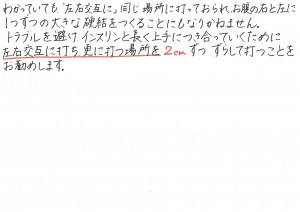 わかっていても、"左右交互に」同じ場所に打っておられ、お腹の右と左に
1つずつの大きな硬結をつくることにもなりかねません。
トラブルを避け、インスリンと長く上手につき合っていくために
左右交互に打ち、更に打つ場所を2cmずつ ずらして打つことを
お勧めします。